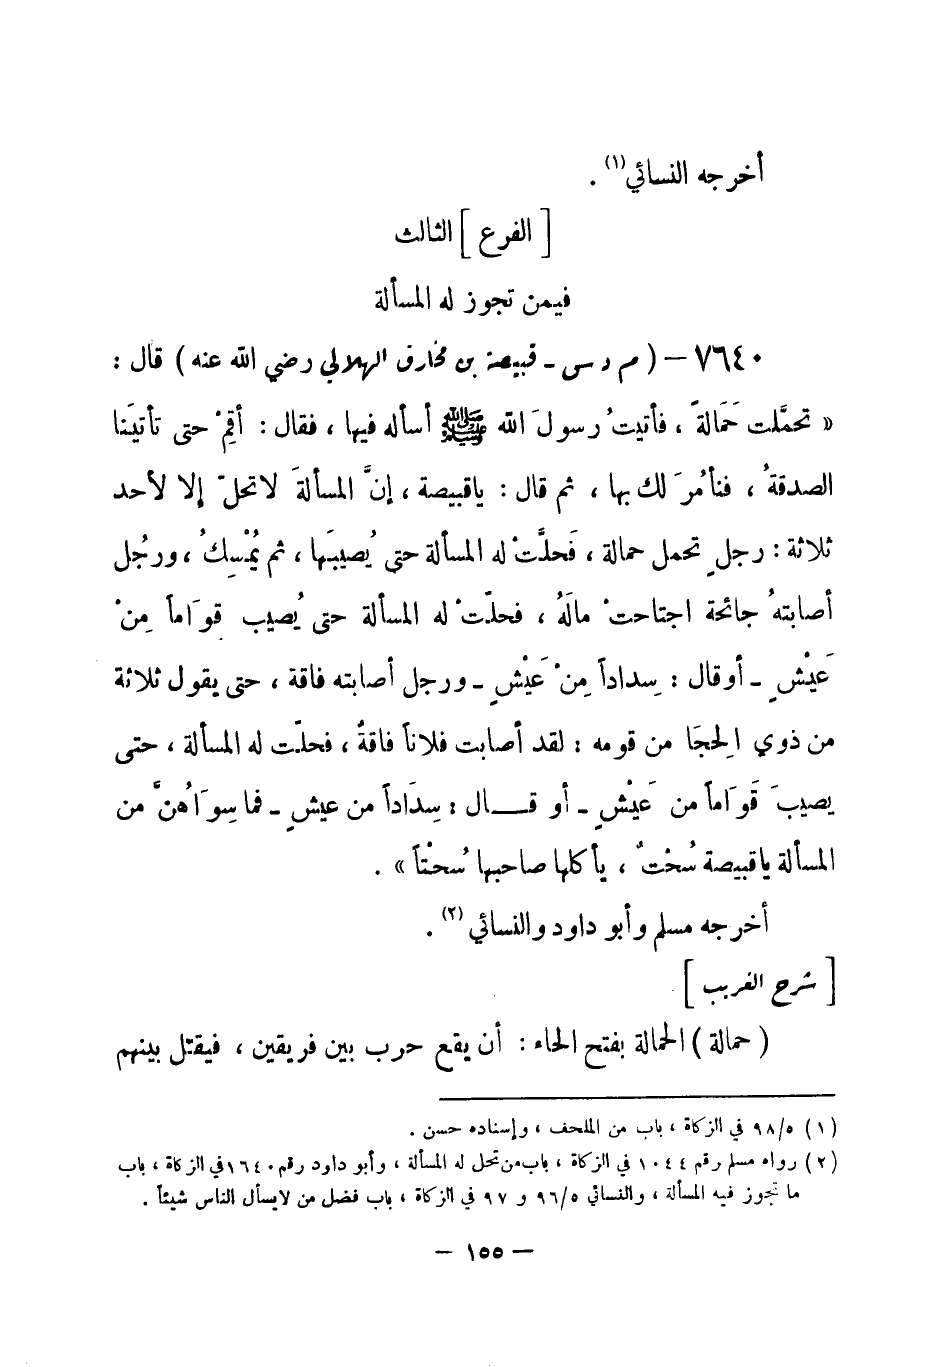 أخرجه النسائي(١) .
[ الفرع ] الثالث
فيمن تجوز له المسألة
٧٦٤٠ – ( م د س – قبيصة بن مخارق الهلالي رضي الله عنه ) قال :
« تحمَّلت حَمَالةً ، فأتيتُ رسولَ الله ﷺ أسأله فيها ، فقال : أقِمْ حتى تأتيَنا
الصدقةُ ، فنأمُرَ لك بها ، ثم قال : ياقبيصة ، إنَّ المسألةَ لاتحلّ إلا لأحد
ثلاثة : رجلٍ تحمل حمالة ، فَحلَّتْ له المسألة حتى يُصيبَها ، ثم يُمْسِكُ ، ورجُل
أصابتهُ جائحة اجتاحتْ مالَهُ ، فحلّتْ له المسألة حتى يُصيب قِوَاماً مِنْ
عَيْشٍ – أوقال : سِداداً مِنْ عَيْشٍ – ورجل أصابته فاقة ، حتى يقول ثلاثة
من ذوي الحِجَا من قومه : لقد أصابت فلاناً فاقةٌ ، فحلّت له المسألة ، حتى
يصيبَ قَوَاماً من عَيْشٍ – أو قـــال : سِدَاداً من عيشٍ – فما سِوَاهُنَّ من
المسألة ياقبيصة سُحْتٌ ، يأكلها صاحبها سُحْتاً » .
أخرجه مسلم وأبو داود والنسائي (٢) .
[ شرح الغريب ]
( حمالة ) الحمالة بفتح الحاء : أن يقع حرب بين فريقين ، فيقتل بينهم
(١) ٩٨/٥ في الزكاة ، باب من الملحف ، وإسناده حسن .
(٢) رواه مسلم رقم ١٠٤٤ في الزكاة ، باب من تحل له المسألة ، وأبو داود رقم ١٦٤٠ في الزكاة ، باب
ما تجوز فيه المسألة ، والنسائي ٩٦/٥ و ٩٧ في الزكاة ، باب فضل من لايسأل الناس شيئاً .
– ١٥٥ –